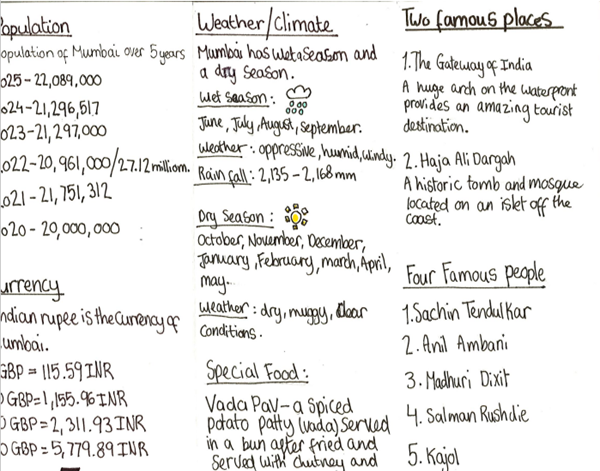 opulation
opulation of Mumbai over 5 years
025 - 22,089,000
024 - 21,296,517
023 - 21,297,000
022 - 20,961,000/27.12 milliom.
021 - 21,751,312
020 - 20,000,000
urrency
ndian rupee is the currency of
umbai.
GBP = 115.59 INR
GBP = 1,155.96 INR
GBP = 2,311.93 INR
GBP = 5,779.89 INR
Weather/Climate
Mumbai has wet a season and
a dry season.
Wet season :
June, July, August, September.
Weather : oppressive, humid, windy.
Rain fall : 2,135 - 2,168 mm
Dry Season :
October, November, December,
January, February, march, April,
may.
Weather : dry, muggy, clear
conditions.
Special Food :
Vada Pav - a spiced
potato patty (vada) served
in a bun after fried and
served with chutney and
Two famous places
1. The Gateway of India
A huge arch on the waterfront
provides an amazing tourist
destination.
2. Haja Ali Dargah
A historic tomb and mosque
located on an islet off the
coast.
Four Famous people
1. Sachin Tendulkar
2. Anil Ambani
3. Madhuri Dixit
4. Salman Rushdie
5. Kajol